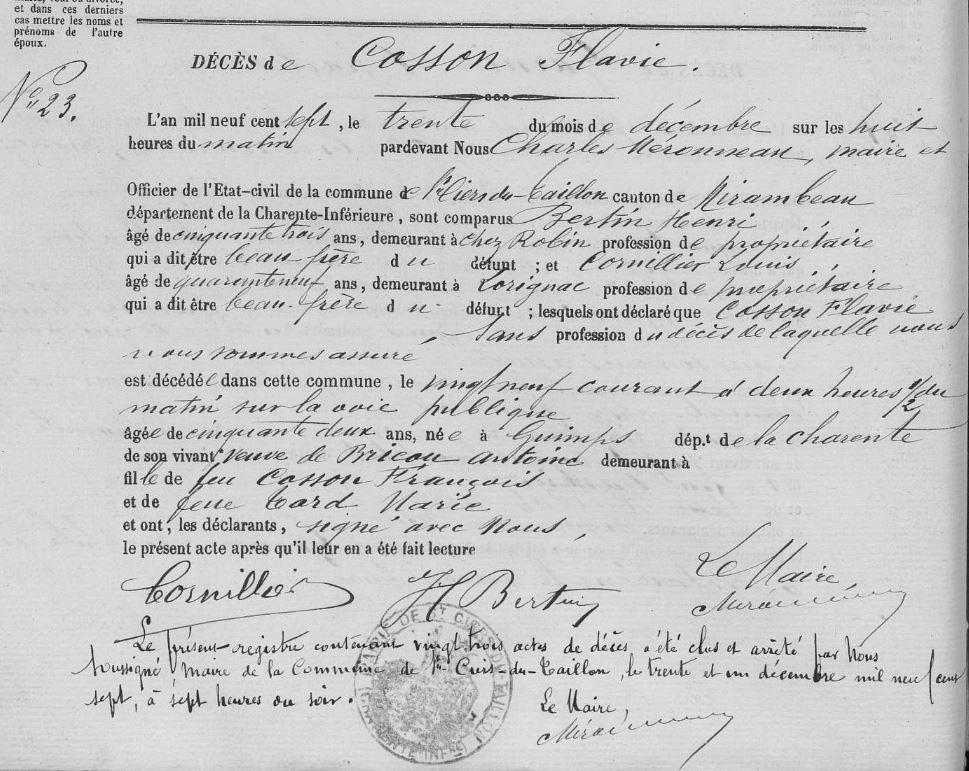 et dans ces derniers
cas mettre les noms et
prénoms de l'autre
époux.
DÉCÈS de Cosson Flavie.
N° 23.
L'an mil neuf cent sept, le trente du mois de décembre sur les huit
heures du matin pardevant Nous Charles , maire et
Officier de l'Etat-civil de la commune de St Ciers du Taillon canton de Mirambeau
département de la Charente-Inférieure, sont comparus Bertin Henri
âgé de cinquante trois ans, demeurant à chez Robin profession de propriétaire
qui a dit être beau frère du défunt ; et Cornillier Louis
âgé de quarante neuf ans, demeurant à Lorignac profession de propriétaire
qui a dit être beau-frère du défunt ; lesquels ont déclaré que Cosson Flavie
sans profession du décès de laquelle nous
nous sommes assuré
est décédée dans cette commune, le vingt neuf courant à deux heures 1/2 du
matin sur la voie publique
âgée de cinquante deux ans, née à Guimps dép.t de la charente
de son vivant veuve de Bricou antoine demeurant à
fille de feu Cosson François
et de feue Tard Marie
et ont, les déclarants, signé avec Nous,
le présent acte après qu'il leur en a été fait lecture
Cornillier H Bertin Le Maire,
Le présent registre contenant vingt trois actes de décès a été clos et arrêté par Nous
soussigné Maire de la Commune de St Ciers-du-Taillon, le trente et un décembre mil neuf cent
sept, à sept heures du soir.
Le Maire,
MAIRIE DE ST CIERS DU TAILLON